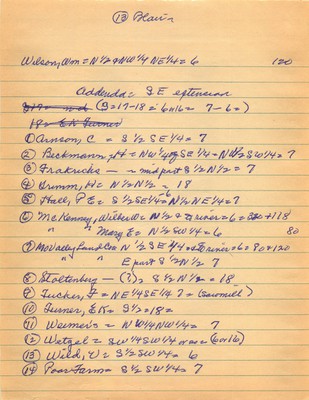 (13) Blair
Wilson, Wm = N 1/2 & NW 1/4 NE 1/4 = 6 120
Addenda = SE extension
(S=17-18 = 6 or 16 = 7-6=)
18 = E.K. Turner
(1) Arnson, C = S 1/2 SE 1/4 = 7
(2) Beckmann, H = NW 1/4 of SE 1/4 = N 1/2 SW 1/4 = 7
(3) Frakricks - midpart S 1/2 N 1/2 = 7
(4) Grimm, H = N 1/2 N 1/2 = 18
(5) Hall, P E = S 1/2 SE 1/4 - 6 N 1/2 NE 1/4 = 7
(6) McKenney, Wilber = N 1/2 + 118
" " Mary E = N 1/2 SW 1/4 = 6 80
(7) Land Co = N 1/2 SE 1/4 = 6 = 80 = 120
" " E part S 1/2 N 1/2 7
(8) Stoltenberg - (?) = S 1/2 N 1/2 = 18
(9) Tucker, F = NE 1/4 SE 1/4 7 = (sawmill)
(10) Turner, EK = S 1/2 = 18 =
(11) Weimer's = NW 1/4 NW 1/4 = 7
(12) Wetzel = SW 1/4 SW 1/4 = (6 or 16)
(13) Wild, V = S 1/2 SW 1/4 = 6
(14) Poor Farm = S 1/2 SW 1/4 = 7